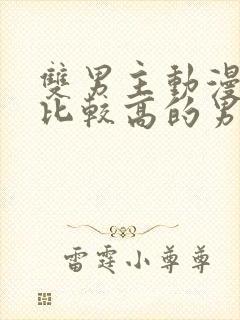 雙男主動漫
比較高的男
雷霆小尊尊